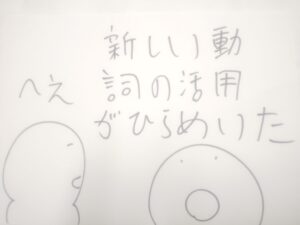 新しい動
詞の活用
がひらめいた
へえ